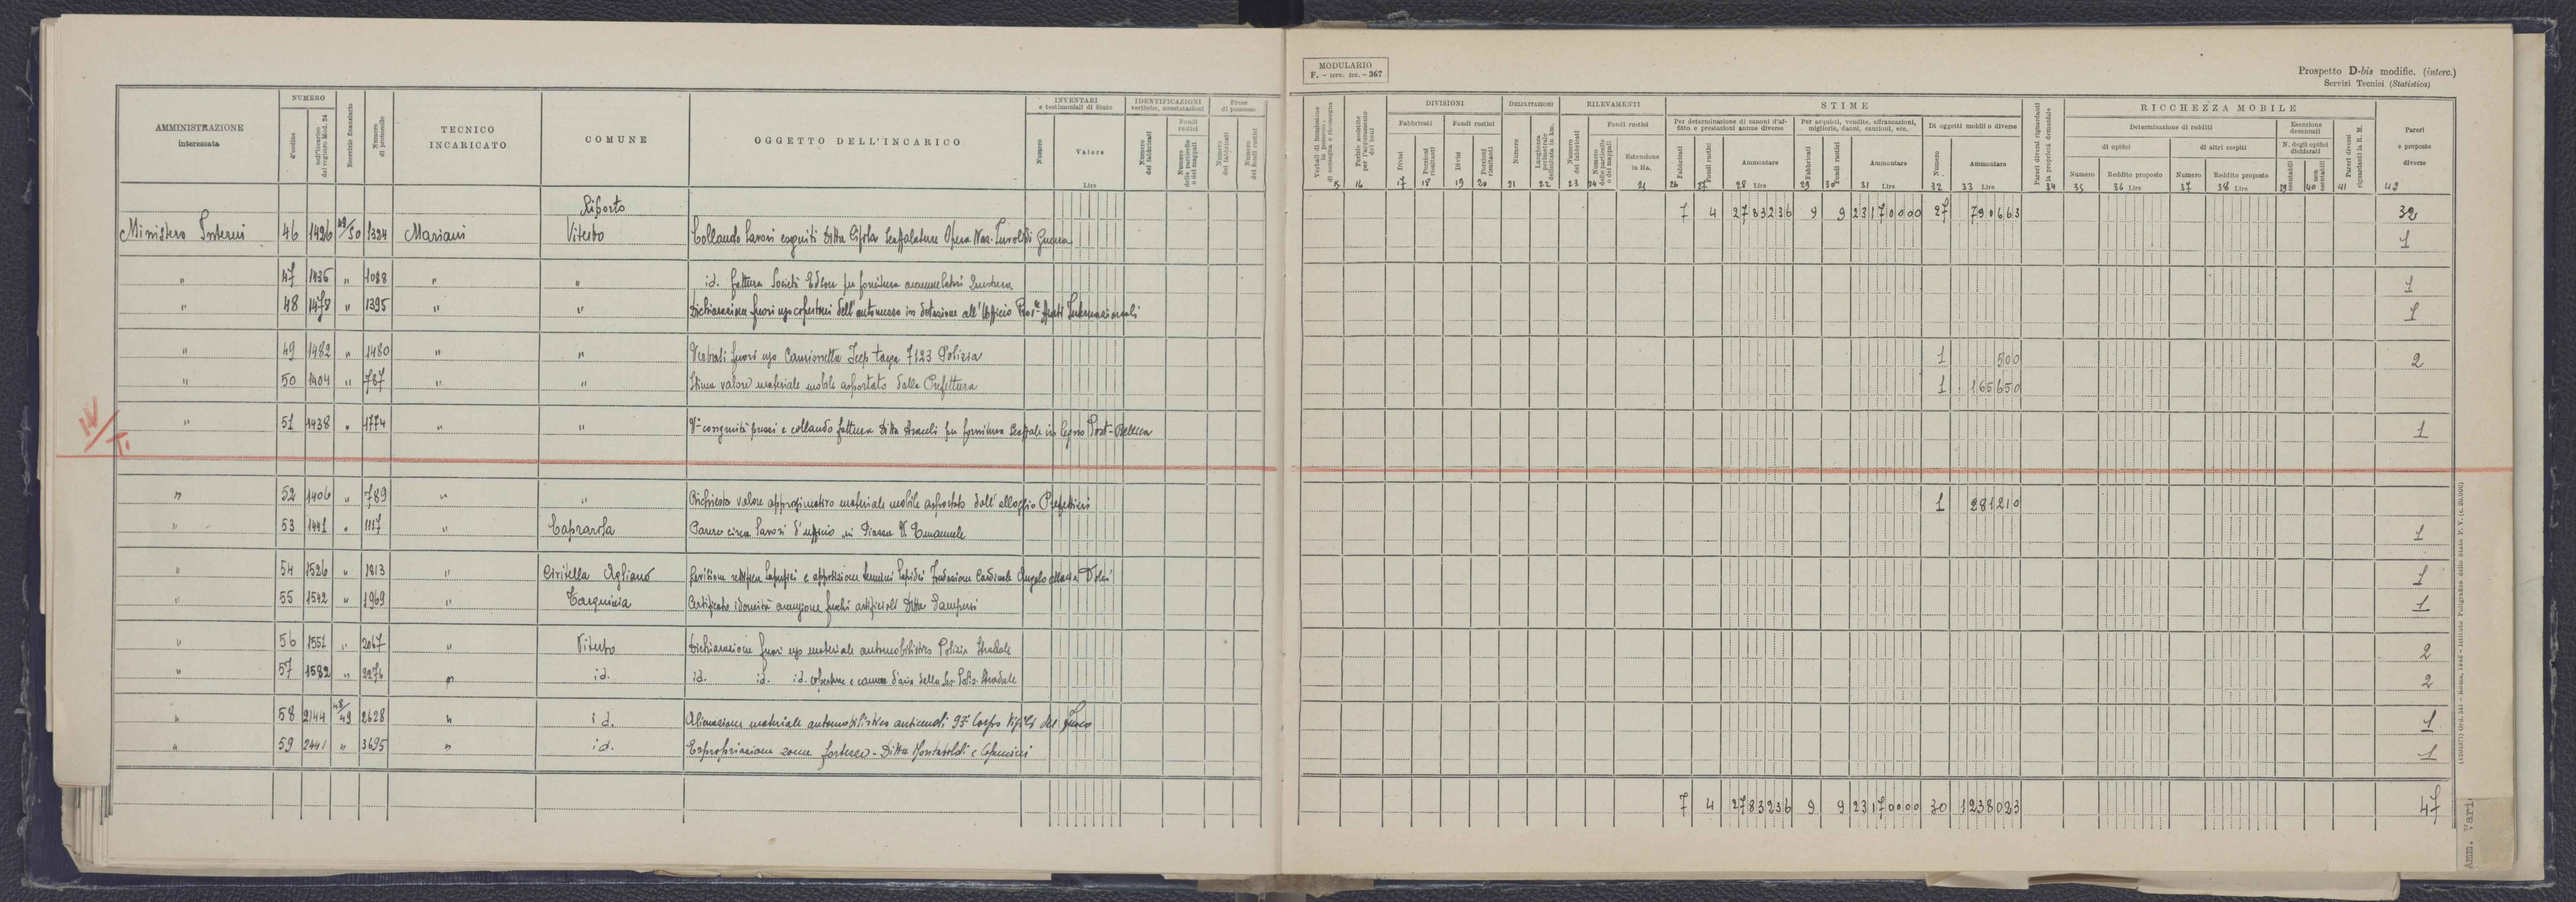 MODULARIO
F. - serv. tec. - 367
Prospetto D-bis modific. (interc.)
Servizi Tecnici (Statistica)
AMMINISTRAZIONE interessata
NUMERO
d'ordine
dell'incarico del registro Mod. 24
Esercizio finanziario
Numero di protocollo
TECNICO INCARICATO
COMUNE
OGGETTO DELL'INCARICO
INVENTARI e testimoniali di Stato
Numero
Valore
Lire
IDENTIFICAZIONI verifiche, constatazioni
Numero dei fabbricati
Fondi rustici
Numero delle particelle o dei mappali
Prese di possesso
Numero dei fabbricati
Numero dei fondi rustici
Verbali di immissione in possesso, di consegna e riconsegna
Perizie assistite per l'accertamento dei Lotti
DIVISIONI
Fabbricati
Fondi rustici
Divisi
Porzioni risultanti
Divisi
Porzioni risultanti
DELIMITAZIONI
Numero
Lunghezza perimetrale delimitata in km.
RILEVAMENTI
Numero dei fabbricati
Fondi rustici
Numero delle particelle o dei mappali
Estensione in Ha.
STIME
Per determinazione di canoni d'affitto e prestazioni annue diverse
Fabbricati
Fondi rustici
Ammontare
Per acquisti, vendite, affrancazioni, migliorie, danni, cauzioni, ecc.
Fabbricati
Fondi rustici
Ammontare
Di oggetti mobili o diverse
Numero
Ammontare
Pareri diversi riguardanti la proprietà demaniale
RICCHEZZA MOBILE
Determinazione di redditi
di opifici
Numero
Reddito proposto
di altri cespiti
Numero
Reddito proposto
Esenzione decennali
N. degli opifici dichiarati
esentabili
non esentabili
Pareri diversi riguardanti la R. M.
Pareri e proposte diverse
15 16 17 18 19 20 21 22 23 24 25 26 27 28 Lire 29 30 31 Lire 32 33 Lire 34 35 36 Lire 37 38 Lire 39 40 41 42
Riporto 7 4 2783236 9 9 23170000 27 790663 32
Ministero Interni 46 1426 49/50 1324 Mariani Viterbo Collaudo lavori eseguiti Ditta Scaffalature Opera Naz. Invalidi Guerra 1
" 47 1435 " 1088 " " id. fattura Società Edison per fornitura accumulatori Questura 1
" 48 1478 " 1395 " " Dichiarazione fuori uso copertoni dell'automezzo in dotazione all'Ufficio 1
" 49 1482 " 1480 " " Verbali fuori uso Camionetta Jeep targa 7123 Polizia 1 500 2
" 50 1404 " 787 " " Stima valore materiale mobile asportato dalla Prefettura 1 165650
IV/T.
" 51 1438 " 1774 " " congruità prezzi e collaudo fattura Ditta Araceli per fornitura scaffale in legno Post-Bellica 1
" 52 1406 " 789 " " Richiesta valore approssimativo materiale mobile asportato dall'alloggio Prefettizio 1 281210
" 53 1441 " 1117 " " Caprarola Parere circa lavori d'ufficio in Piazza V. Emanuele 1
" 54 1526 " 1813 " Civitella Agliano apposizione termini lapidei Fondazione Cardinale Angelo Maria Dolci 1
" 55 1542 " 1969 " Tarquinia Certificato idoneità accensione fuochi artificiali Ditta 1
" 56 1551 " 2067 " Viterbo Dichiarazione fuori uso materiale automobilistico Polizia Stradale 2
" 57 1582 " 2276 " id. id. id. id. coperture e camere d'aria della Sez. Poliz. Stradale 2
" 58 2144 48/49 2628 " id. Alienazione materiale automobilistico antincendi 93° Corpo Vigili del fuoco 1
" 59 2441 " 3695 " id. Espropriazione zona fortezza - Ditta 1
7 4 2783236 9 9 23170000 30 1238023 47
Amm. Vari